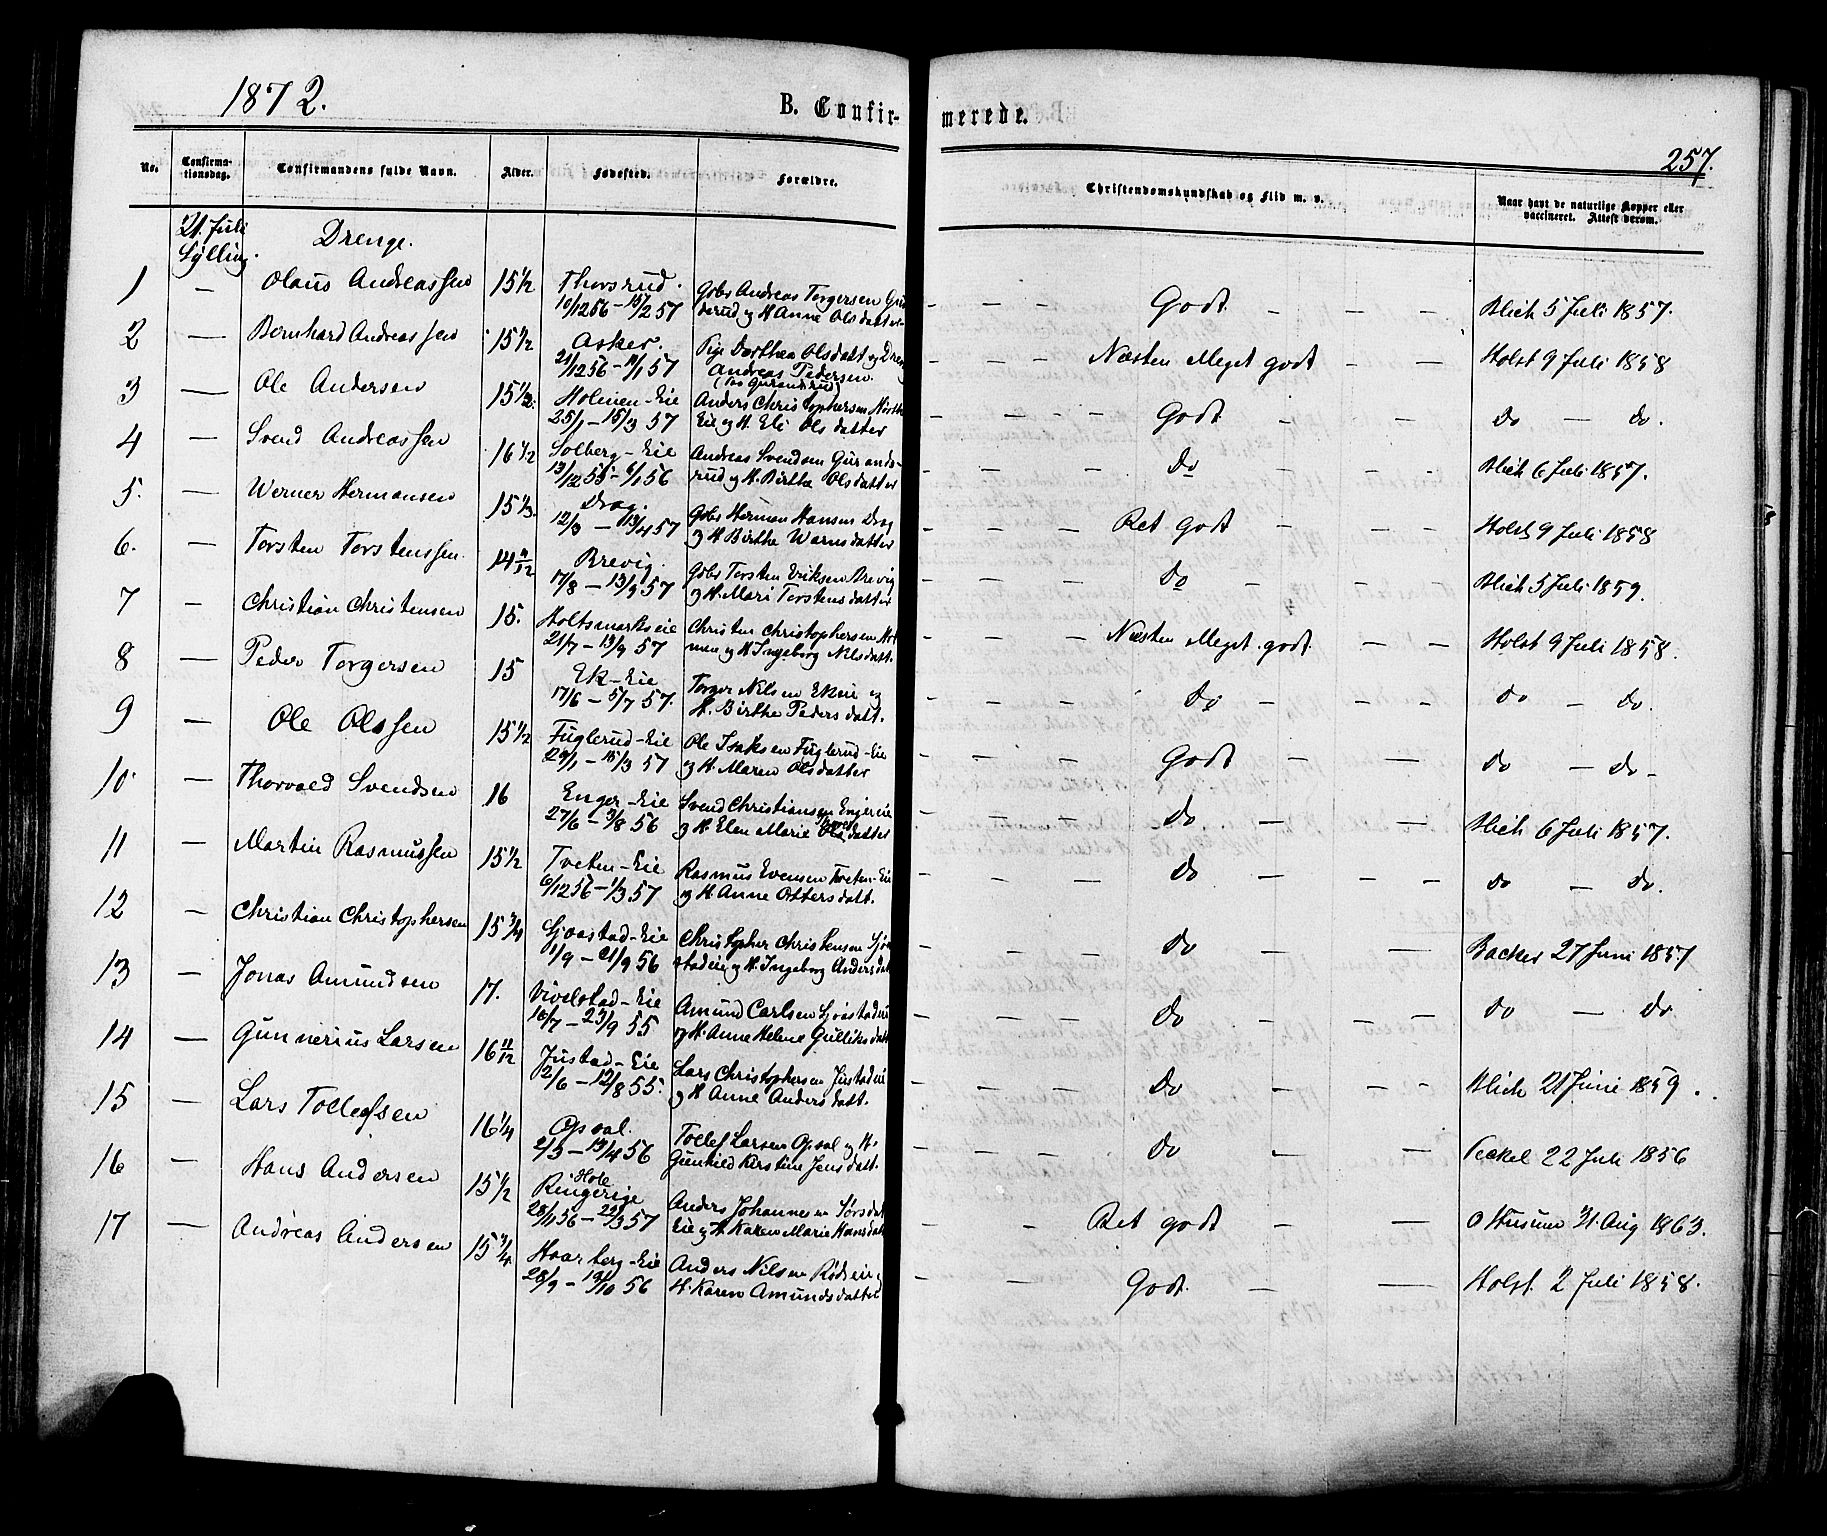 1872.
B. Confir-
merede.
257.
No.
Confirma-
tionsdag.
Confirmandens fulde Navn.
Alder.
Fødested.
Forældre.
Christendomskundskab og Flid m. v.
Naar havt de naturlige Kopper eller
vaccineret. Attest derom.
21. Juli
Sylling.
Drenge.
1 — Olaus Andreassen 15 1/2 Thorsrud.
10/12 56 – 15/2 57
Gbr Andreas Torgersen
og H Anne Olsdatter
— — — Godt — — — Blich 5 Juli 1857.
2 — Bernhard Andreassen 15 1/2 Asker.
21/12 56 – 11/1 57
Pige Dorthea Olsdatt og Dreng
Andreas Pedersen
— — — Næsten Meget godt — — Holst 9 Juli 1858
3 — Ole Andersen 15 1/2 Holmen-Eie
25/1 – 15/3 57
Anders Christophersen
Eie og H. Eli Olsdatter
— — — Godt — — do — do.
4 — Svend Andreassen 16 1/2 Solberg-Eie
13/12 55 – 6/1 56
Andreas Svendsen Gurands-
rud og H. Birthe Olsdatter
— — — do — — Blich 6 Juli 1857.
5. — Werner Hermansen 15 1/3 Drag.
12/3 – 13/4 57
Gbr Herman Hansen Drag
og H Birthe Warnsdatter
— — — Ret godt — — Holst 9 Juli 1858
6. — Torsten Torstenssen. 14 11/12 Brevig.
17/8 – 13/9 57
Gbr Torsten Eriksen Brevig
og H. Mari Torstensdatter
— — — do — — — Blich 5 Juli 1859.
7 — Christian Christensen 15. Holtsmarkseie
21/7 – 13/9 57
Christen Christophersen Hol
men og H Ingeborg Nilsdatt.
— — — Næsten Meget godt. — — Holst 9 Juli 1858.
8 — Peder Torgersen 15 Ek-Eie
17/6 – 5/7 57.
Torger Nilsen Ekeie og
H. Birthe Pedersdatt.
— — — do — — — do — do.
9 — Ole Olssen 15 1/2 Fuglerud-Eie
29/1 – 15/3 57
Ole Isaksen Fuglerud-Eie
og H. Maren Olsdatter
— — — Godt — — — do — do —
10. — Thorvald Svendsen 16 Enger-Eie
27/6 – 3/8 56
Svend Christiansen Engereie
og H. Elen Marie
— — — do — — — Blich 6 Juli 1857.
11 — Martin Rasmussen 15 1/2 Tveten-Eie
6/12 56 – 1/3 57
Rasmus Evensen Tveten-Eie
og H Anne Ottersdatt.
— — — do — — — do — do.
12 — Christian Christophersen 15 3/4 Gjvastad-Eie
1/9 – 21/9 56
Christopher Christensen
og H. Ingeborg Andersdat
— — — do — — Backer 27 Juni 1857
13 — Jonas Amundsen 17. Vivelstad-Eie
10/7 – 23/9 55
Amund Carlsen
og H. Anne Helene Gulliksdatt
— — — do — — do — do
14 — Gunnerius Larsen 16 11/12 Justad-Eie
2/6 – 12/8 55.
Lars Christophersen Justadeie
og H Anne Andersdatt.
— — — do — — — Blich 21 Juni 1859.
15 — Lars Tollefsen 16 1/4 Opsal.
2/3 – 13/4 56
Tollef Larsen Opsal og H.
Gunhild Kirstine Jensdatt.
— — — do — — Peckel 22 Juli 1856
16 — Hans Andersen 15 1/2 Hole
Ringerige
28/11 56 – 22/3 57
Anders Johannesen
Eie og H Karen Marie Hansdatt
— — Ret godt — — O Husum 31. Aug 1863.
17 — Andreas Andersen 15 3/4 Haarberg-Eie
28/9 – 19/10 56
Anders Nilsen Rødseie og
H. Karen Amundsdatter
— — Godt. — — Holst. 2 Juli 1858.